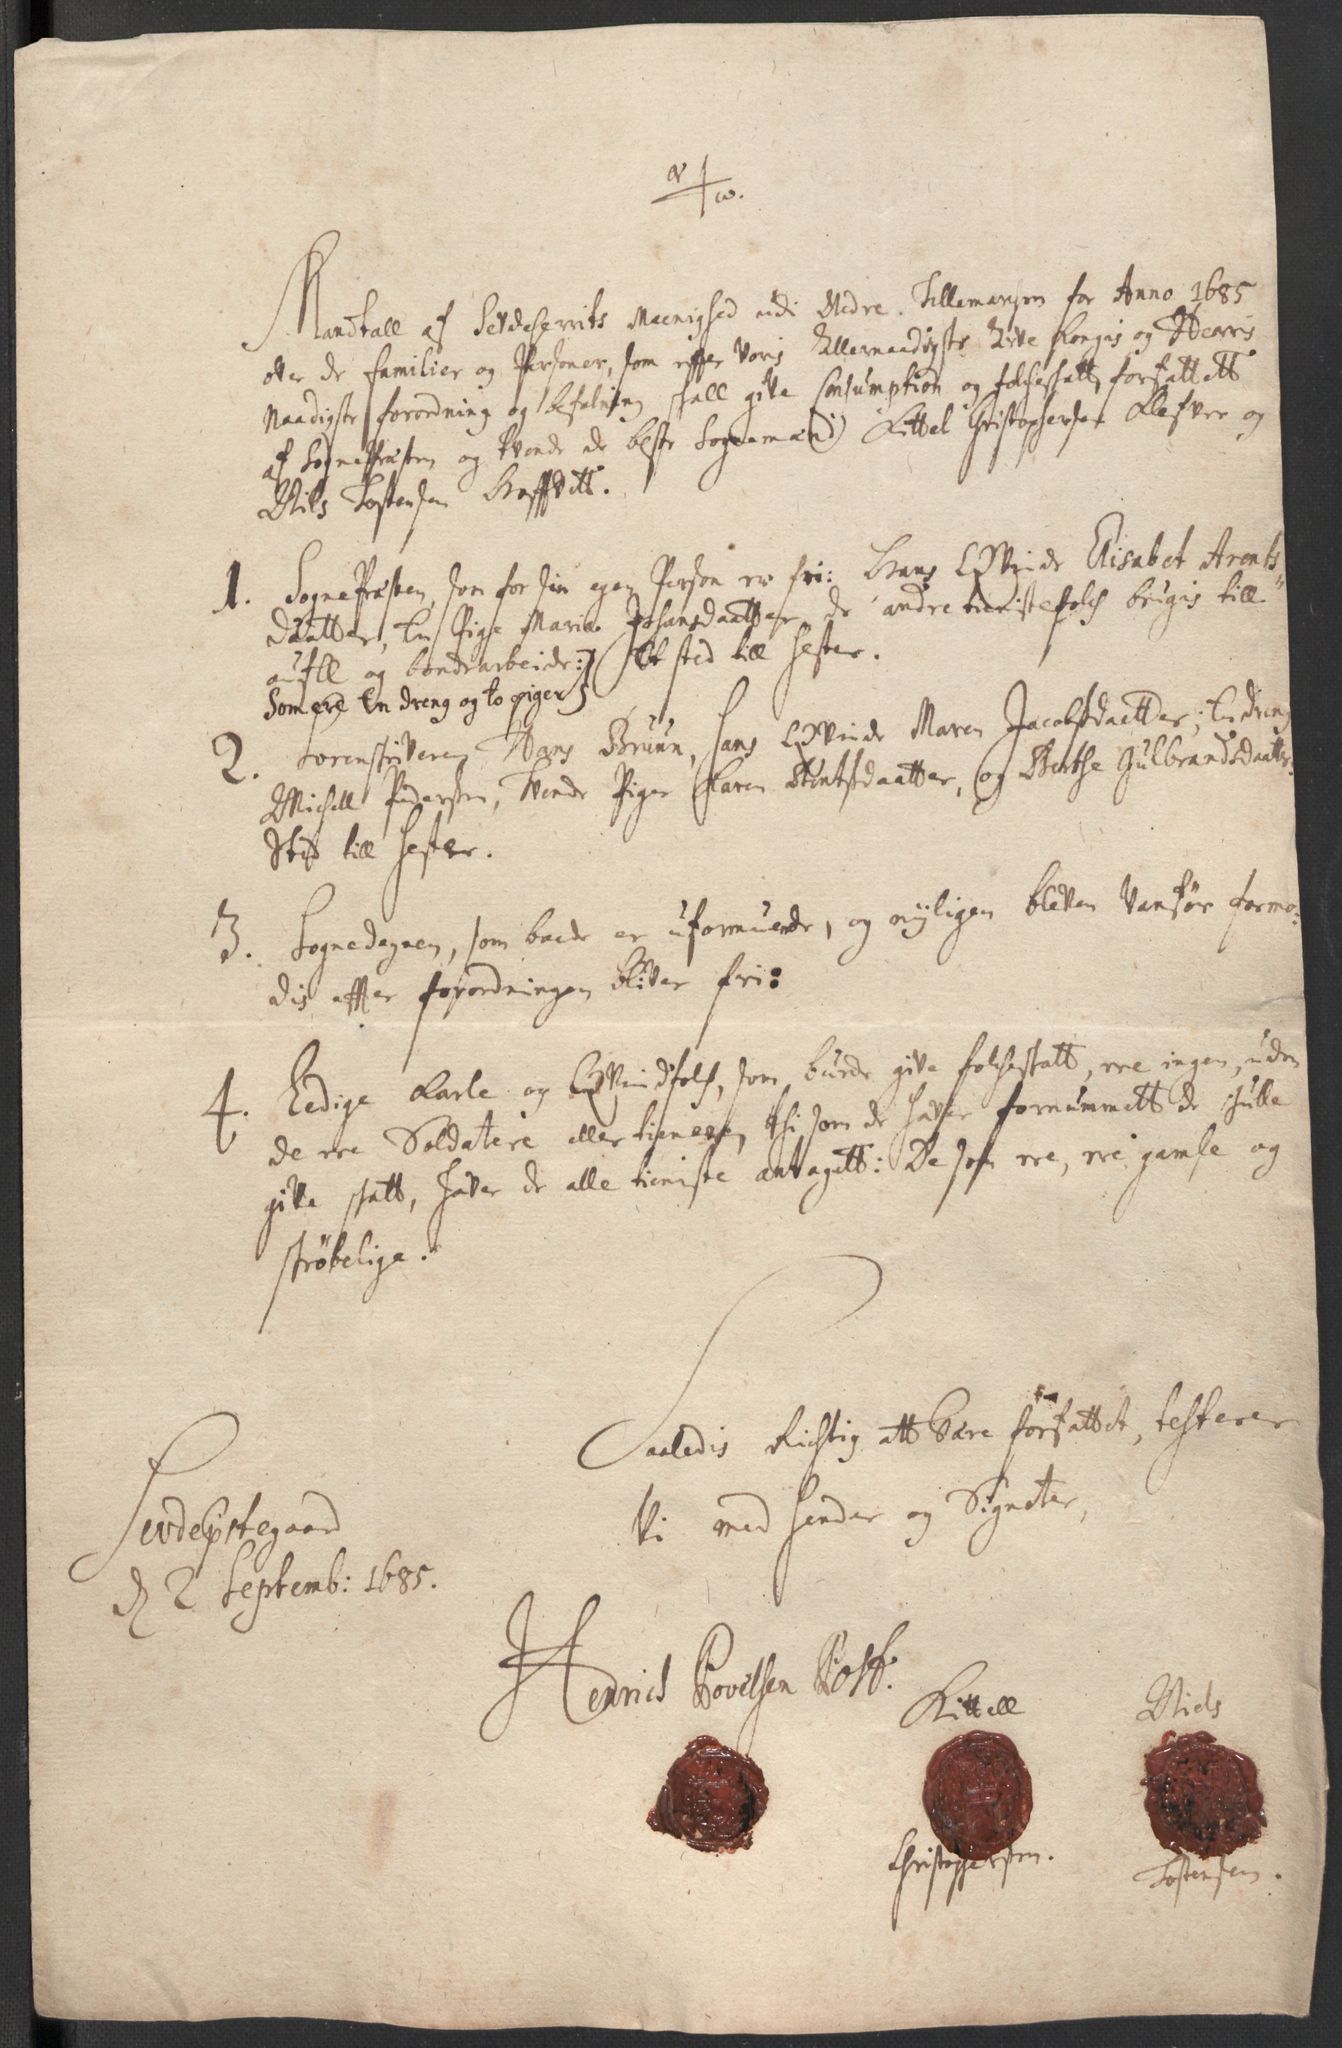 α/ω.
Mandtall af Sevdeherrits Meenighed udi Nedre Tillemarchen for Anno 1685
over de familier og Personer, som effter Voris Allernaadigste Arve Kongis og Herris
Naadigste forordning og befalning skall give Consumption og folcheskatt, forfattett
af SognePræsten og tvende de beste Sognemænd Kittel Christophersen Klefver og
Niels Tostensen
1. SognePræsten, som for sin egen Person er fri: Hans Qvinde Elisabet Arents
daatter, En Pige Maria Johansdaatter, de andre tienistefolch brugis till
aufll og bondearbeide: Et sted till hester.
Som ere En dreng og to piger
2. Sorenskriveren Hans Bruun, hans Qvinde Maren Jacobsdaatter, En dreng
Michell Pedersen, Tvende Piger Karen Bentsdaatter, og Berthe Gulbrandsdaatter
Sted till hester.
3. Sognedegnen, som baade er uformuende, og nyligen bleven Vanför formo-
dis effter forordningen bliver fri:
4. Ledige Karle og Qvindfolch, som burde give folcheskatt, ere ingen, uden
de ere Soldatere eller tienere, thi som de haver fornummett de skulle
give skatt, haver de alle tieniste antagett: De som ere, ere gamle og
skröbelige.
Saaledis Richtig att være forfattet, testerer
Vi med hender og Signeter,
Sevdeprstegaard
d 2 Septemb: 1685.
Henrich Povelsen Post.
Kittell
Christophersen.
Niels
Tostensen.